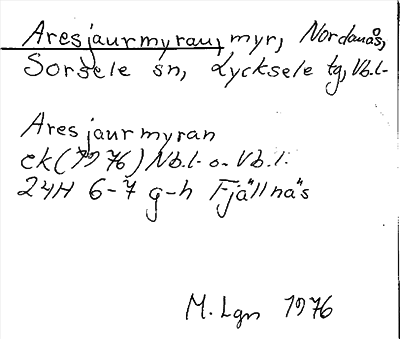 Aresjaurmyran, myr, Nordanås,
Sorsele sn, Lycksele tg, Vb.l-
Aresjaurmyran
ek (1976) Nb.l- o. Vb.l.
24H 6-7 g-h Fjällnäs
M. Lgn 1976